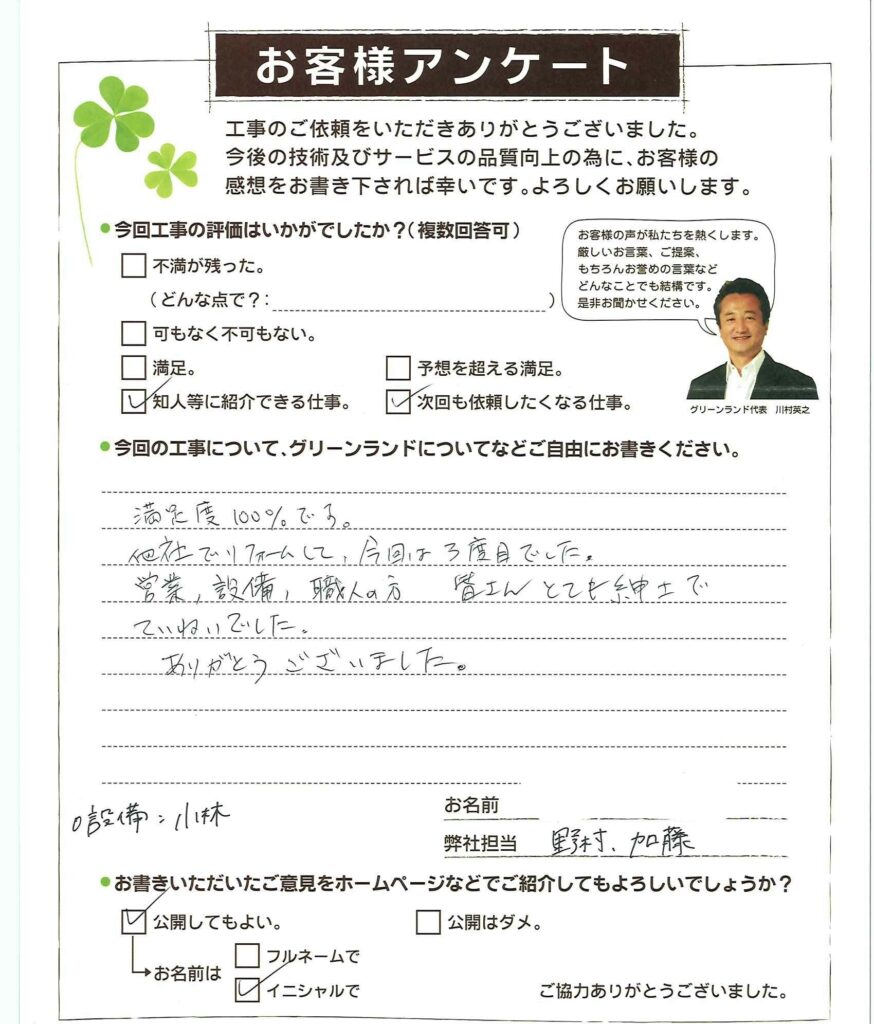 お客様アンケート
工事のご依頼をいただきありがとうございました。
今後の技術及びサービスの品質向上の為に、お客様の
感想をお書き下されば幸いです。よろしくお願いします。
今回工事の評価はいかがでしたか?(複数回答可)
不満が残った。
(どんな点で?: )
可もなく不可もない。
満足。
予想を超える満足。
知人等に紹介できる仕事。
次回も依頼したくなる仕事。
お客様の声が私たちを熱くします。
厳しいお言葉、ご提案、
もちろんお誉めの言葉など
どんなことでも結構です。
是非お聞かせください。
グリーンランド代表 川村英之
今回の工事について、グリーンランドについてなどご自由にお書きください。
満足度100%です。
他社でリフォームして、今回は3度目でした。
営業,設備,職人の方 皆さんとても紳士で
ていねいでした。
ありがとうございました。
設備:小林
お名前
弊社担当 野村、加藤
お書きいただいたご意見をホームページなどでご紹介してもよろしいでしょうか?
公開してもよい。
公開はダメ。
お名前は
フルネームで
イニシャルで
ご協力ありがとうございました。